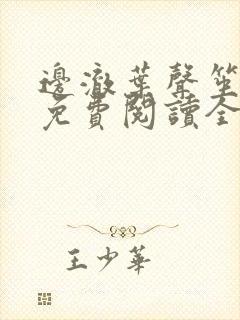 邊澈葉聲笙
免費閱讀全
王少華